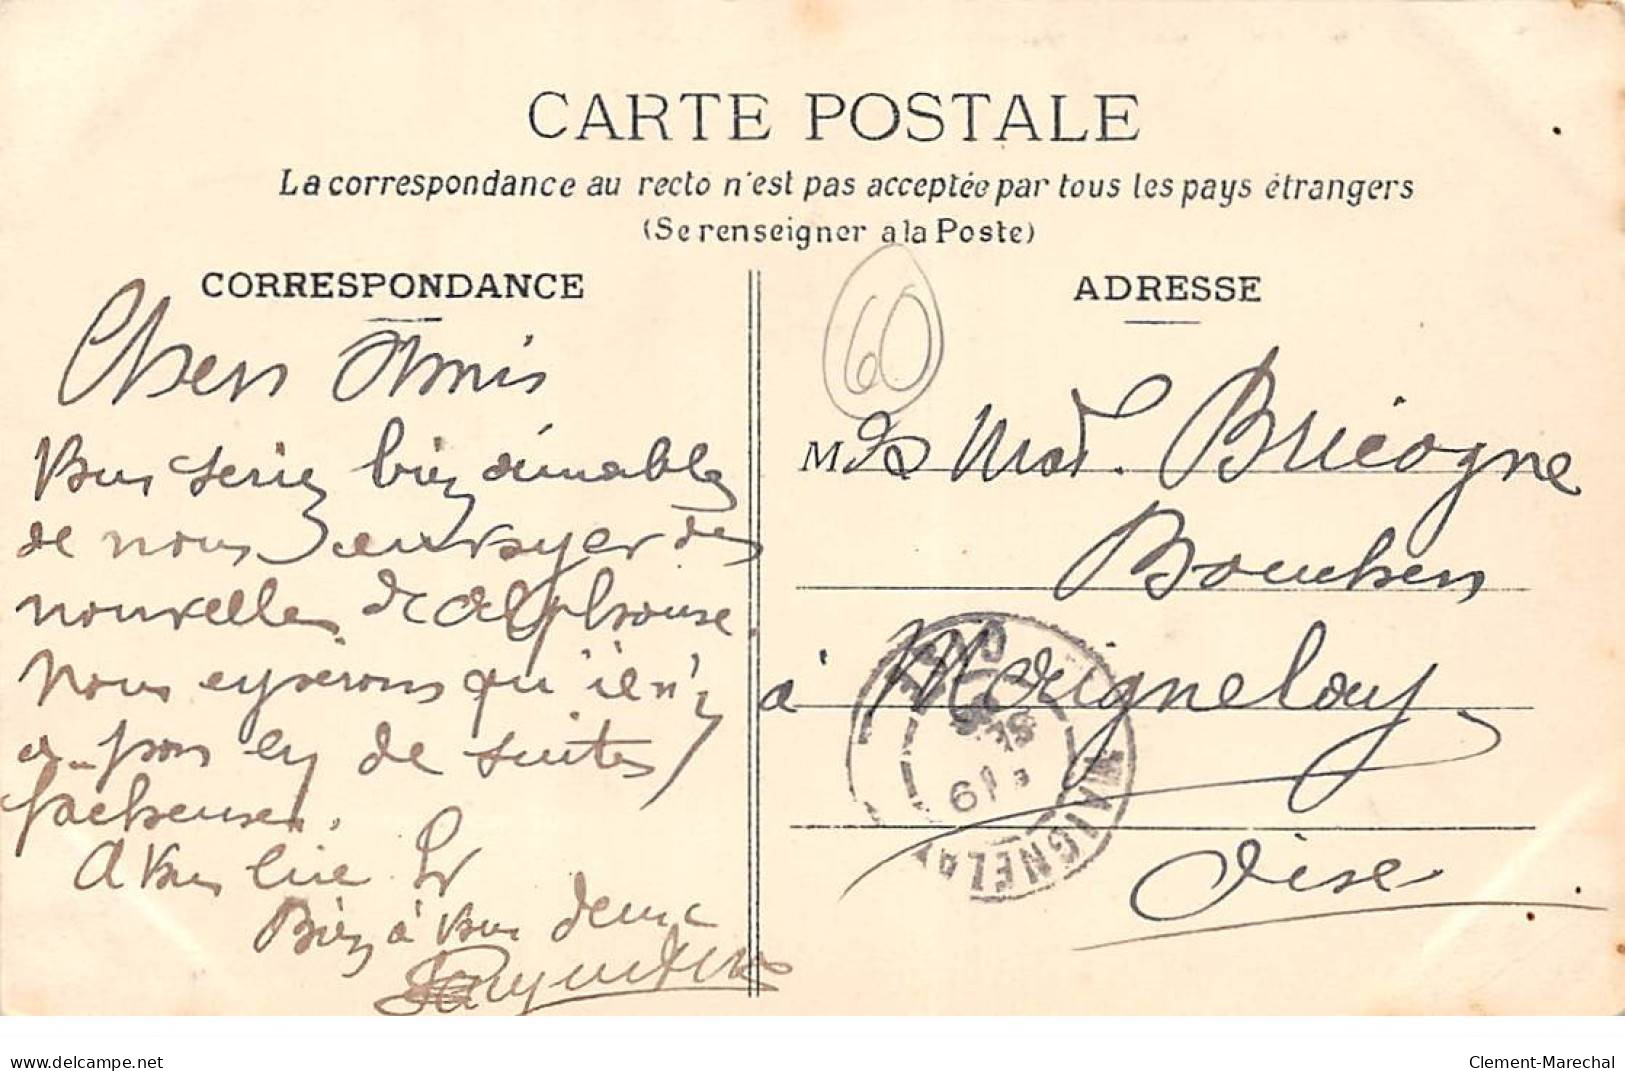 CARTE POSTALE
La correspondance au recto n'est pas acceptée par tous les pays étrangers
(Se renseigner a la Poste)
CORRESPONDANCE
Chers Amis
Vous seriez bien aimables
de nous envoyer des
nouvelles de Alphonse.
Nous espérons qu'il n'y
a pas eu de suites
facheuses.
A vous lire
Bien à vous deux
60
ADRESSE
M Bricogne
Bouchers
à Maignelay
Oise
MAIGNELAY
delcampe.net
Clement-Marechal